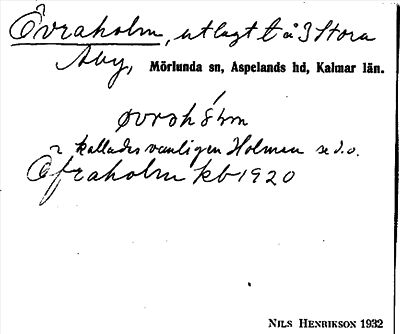 Övraholm, utlagt t å 3 Stora
Åby, Mörlunda sn, Aspelands hd, Kalmar län.
øvrshólm
kallades vanligen Holmen se d.o.
Öfraholm kb 1920
NILS HENRIKSON 1932